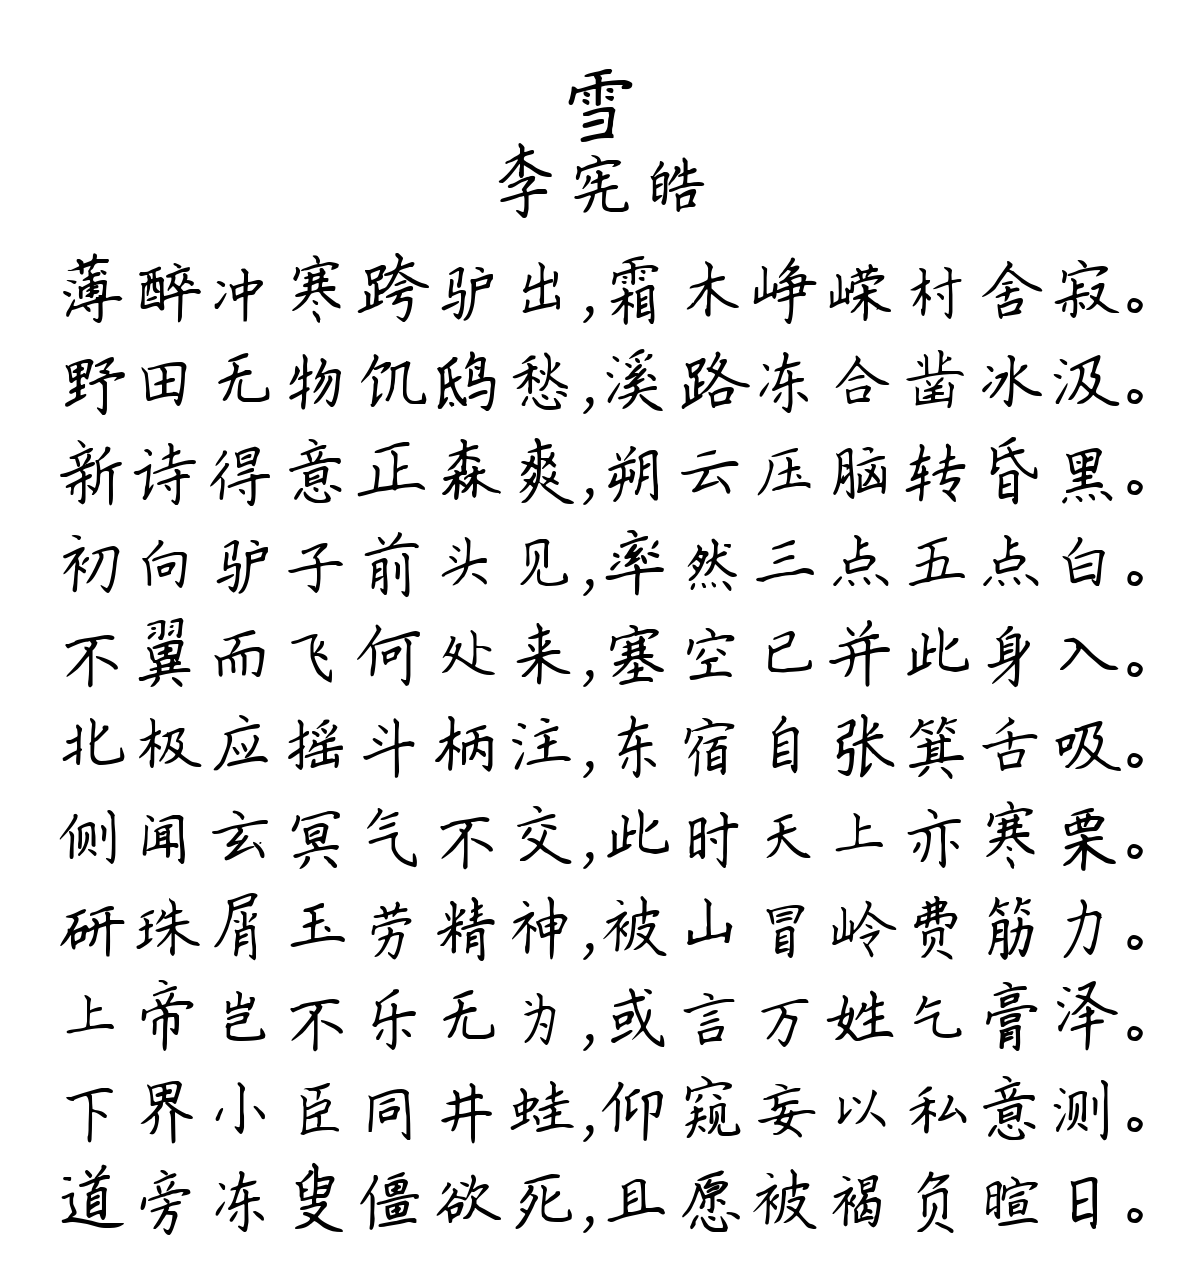 雪
李宪皓
薄醉冲寒跨驴出,霜木峥嵘村舍寂。
野田无物饥鸱愁,溪路冻合凿冰汲。
新诗得意正森爽,朔云压脑转昏黑。
初向驴子前头见,率然三点五点白。
不翼而飞何处来,塞空已并此身入。
北极应摇斗柄注,东宿自张箕舌吸。
侧闻玄冥气不交,此时天上亦寒栗。
研珠屑玉劳精神,被山冒岭费筋力。
上帝岂不乐无为,或言万姓乞膏泽。
下界小臣同井蛙,仰窥妄以私意测。
道旁冻叟僵欲死,且愿被褐负暄日。